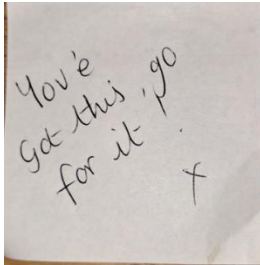 You'e
Got this, go
for it!
x